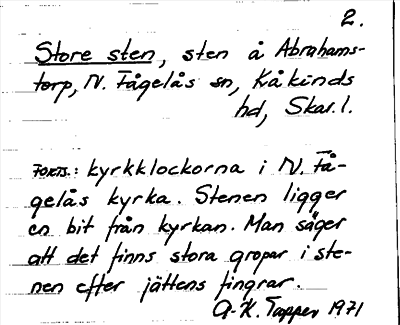 2.
Store sten, sten å Abrahams-
torp, N. Fågelås sn, Kåkinds
hd, Skar. l.
FORTS.: kyrkklockorna i N. Få-
gelås kyrka. Stenen ligger
en bit från kyrkan. Man säger
att det finns stora gropar i ste-
nen efter jättens fingrar.
A-K. Tapper 1971